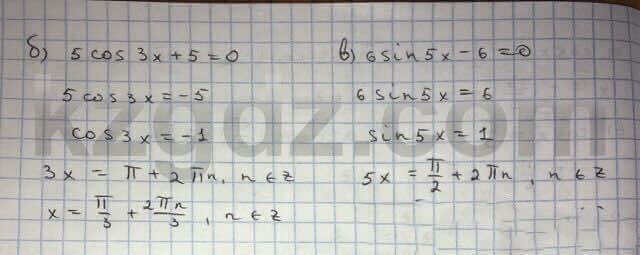 б) 5 cos 3x + 5 = 0
5 cos 3x = -5
cos 3x = -1
3x = π + 2πn, n ∈ z
x = π/3 + 2πn/3, n ∈ z
в) 6 sin 5x - 6 = 0
6 sin 5x = 6
sin 5x = 1
5x = π/2 + 2πn, n ∈ z
kzgdz.com